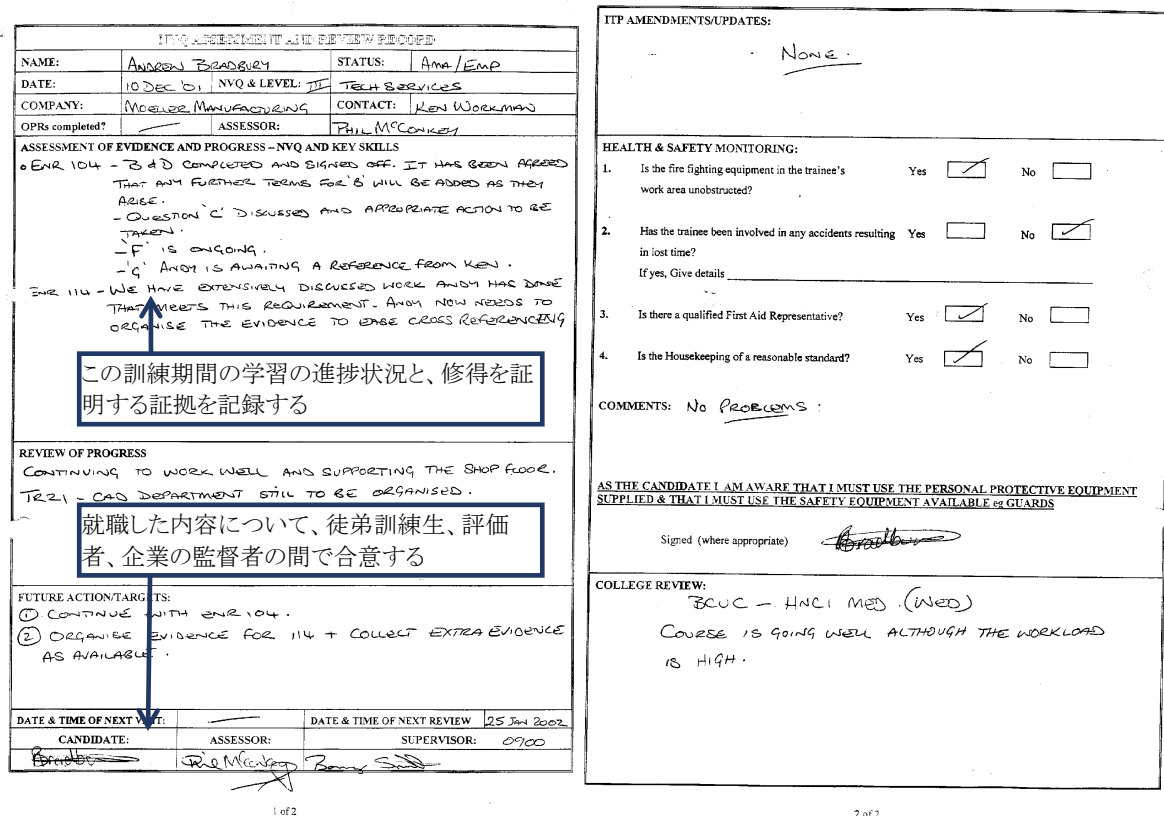 NVQ ASSESSMENT AND REVIEW RECORD
NAME: ANDREW BRADBURY STATUS: AMA/EMP
DATE: 10 DEC '01 NVQ & LEVEL: III TECH SERVICES
COMPANY: MOELLER MANUFACTURING CONTACT: KEN WORKMAN
OPRs completed? — ASSESSOR: PHIL McCONKEY
ASSESSMENT OF EVIDENCE AND PROGRESS – NVQ AND KEY SKILLS
• ENR 104 - B & D COMPLETED AND SIGNED OFF. IT HAS BEEN AGREED
THAT ANY FURTHER TERMS FOR 'B' WILL BE ADDED AS THEY
ARISE.
- QUESTION 'C' DISCUSSED AND APPROPRIATE ACTION TO BE
TAKEN.
- 'F' IS ONGOING.
- 'G' ANDY IS AWAITING A REFERENCE FROM KEN.
ENR 114 - WE HAVE EXTENSIVELY DISCUSSED WORK ANDY HAS DONE
THAT MEETS THIS REQUIREMENT. ANDY NOW NEEDS TO
ORGANISE THE EVIDENCE TO EASE CROSS REFERENCING
この訓練期間の学習の進捗状況と、修得を証
明する証拠を記録する
REVIEW OF PROGRESS
CONTINUING TO WORK WELL AND SUPPORTING THE SHOP FLOOR.
TR21 - CAD DEPARTMENT STILL TO BE ORGANISED.
就職した内容について、徒弟訓練生、評価
者、企業の監督者の間で合意する
FUTURE ACTION/TARGETS:
① CONTINUE WITH ENR 104.
② ORGANISE EVIDENCE FOR 114 + COLLECT EXTRA EVIDENCE
AS AVAILABLE.
DATE & TIME OF NEXT VISIT: — DATE & TIME OF NEXT REVIEW 25 JAN 2002
CANDIDATE: ASSESSOR: SUPERVISOR: 0900
Phil McConkey
1 of 2
ITP AMENDMENTS/UPDATES:
NONE.
HEALTH & SAFETY MONITORING:
1. Is the fire fighting equipment in the trainee's Yes ✓ No
work area unobstructed?
2. Has the trainee been involved in any accidents resulting Yes No ✓
in lost time?
If yes, Give details
3. Is there a qualified First Aid Representative? Yes ✓ No
4. Is the Housekeeping of a reasonable standard? Yes ✓ No
COMMENTS: NO PROBLEMS :
AS THE CANDIDATE I AM AWARE THAT I MUST USE THE PERSONAL PROTECTIVE EQUIPMENT
SUPPLIED & THAT I MUST USE THE SAFETY EQUIPMENT AVAILABLE eg GUARDS
Signed (where appropriate) Bradbury
COLLEGE REVIEW:
BCUC - HNC1 MED. (WED)
COURSE IS GOING WELL ALTHOUGH THE WORKLOAD
IS HIGH.
2 of 2